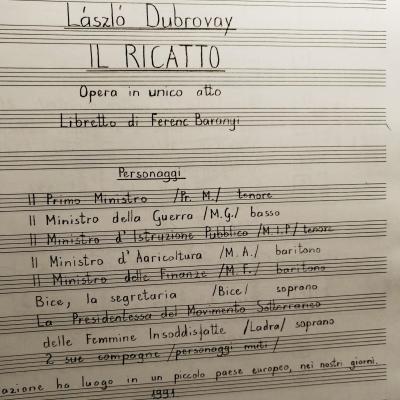 László Dubrovay
IL RICATTO
Opera in unico atto
Libretto di Ferenc Baranyi
Personaggi
Il Primo Ministro /Pr. M./ tenore
Il Ministro della Guerra /M.G./ basso
Il Ministro d'Istruzione Pubblica /M.I.P/ tenore
Il Ministro d'Agricoltura /M.A./ baritono
Il Ministro delle Finanze /M.F./ baritono
Bice, la segretaria /Bice/ soprano
La Presidentessa del Movimento Sotterraneo
delle Femmine Insoddisfatte /Ladra/ soprano
2 sue compagne /personaggi muti/
azione ha luogo in un piccolo paese europeo, nei nostri giorni.
1991.